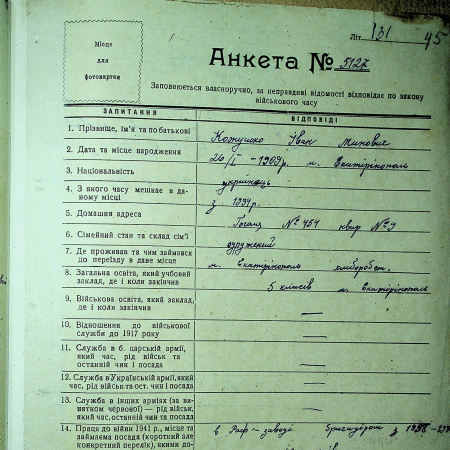 Літ. 131 45
Місце
для
фотокартки
Анкета № 5127
Заповнюється власноручно, за неправдиві відомості відповідає по закону
військового часу
ЗАПИТАННЯ ВІДПОВІДІ
1. Прізвище, ім'я та по батькові Іван
2. Дата та місце народження 26/I – 1909 р. м. Екатерінополь
3. Національність українець
4. З якого часу мешкає в да-
ному місці з 1934 р.
5. Домашня адреса № 454 квир № 9
6. Сімейний стан та склад сім'ї
7. Де проживав та чим займався
до переїзду в дане місце м. Екатерінополь хлібороб.
8. Загальна освіта, який учбовий
заклад, де і коли закінчив 5 класів м. Екатерінополь
9. Військова освіта, який заклад,
де і коли закінчив —
10. Відношення до військової
служби до 1917 року —
11. Служба в б. царській армії,
який час, рід військ та
останній чин і посада —
12. Служба в Українській армії, який
час, рід військ та ост. чин і посада —
13. Служба в інших арміях (за ви-
нятком червоної) — рід військ,
який час, останній чин та посада —
14. Праця до війни 1941 р., місце та
займаєма посада (короткий але
конкретний перелік), якими до- в заводі бригадіром з